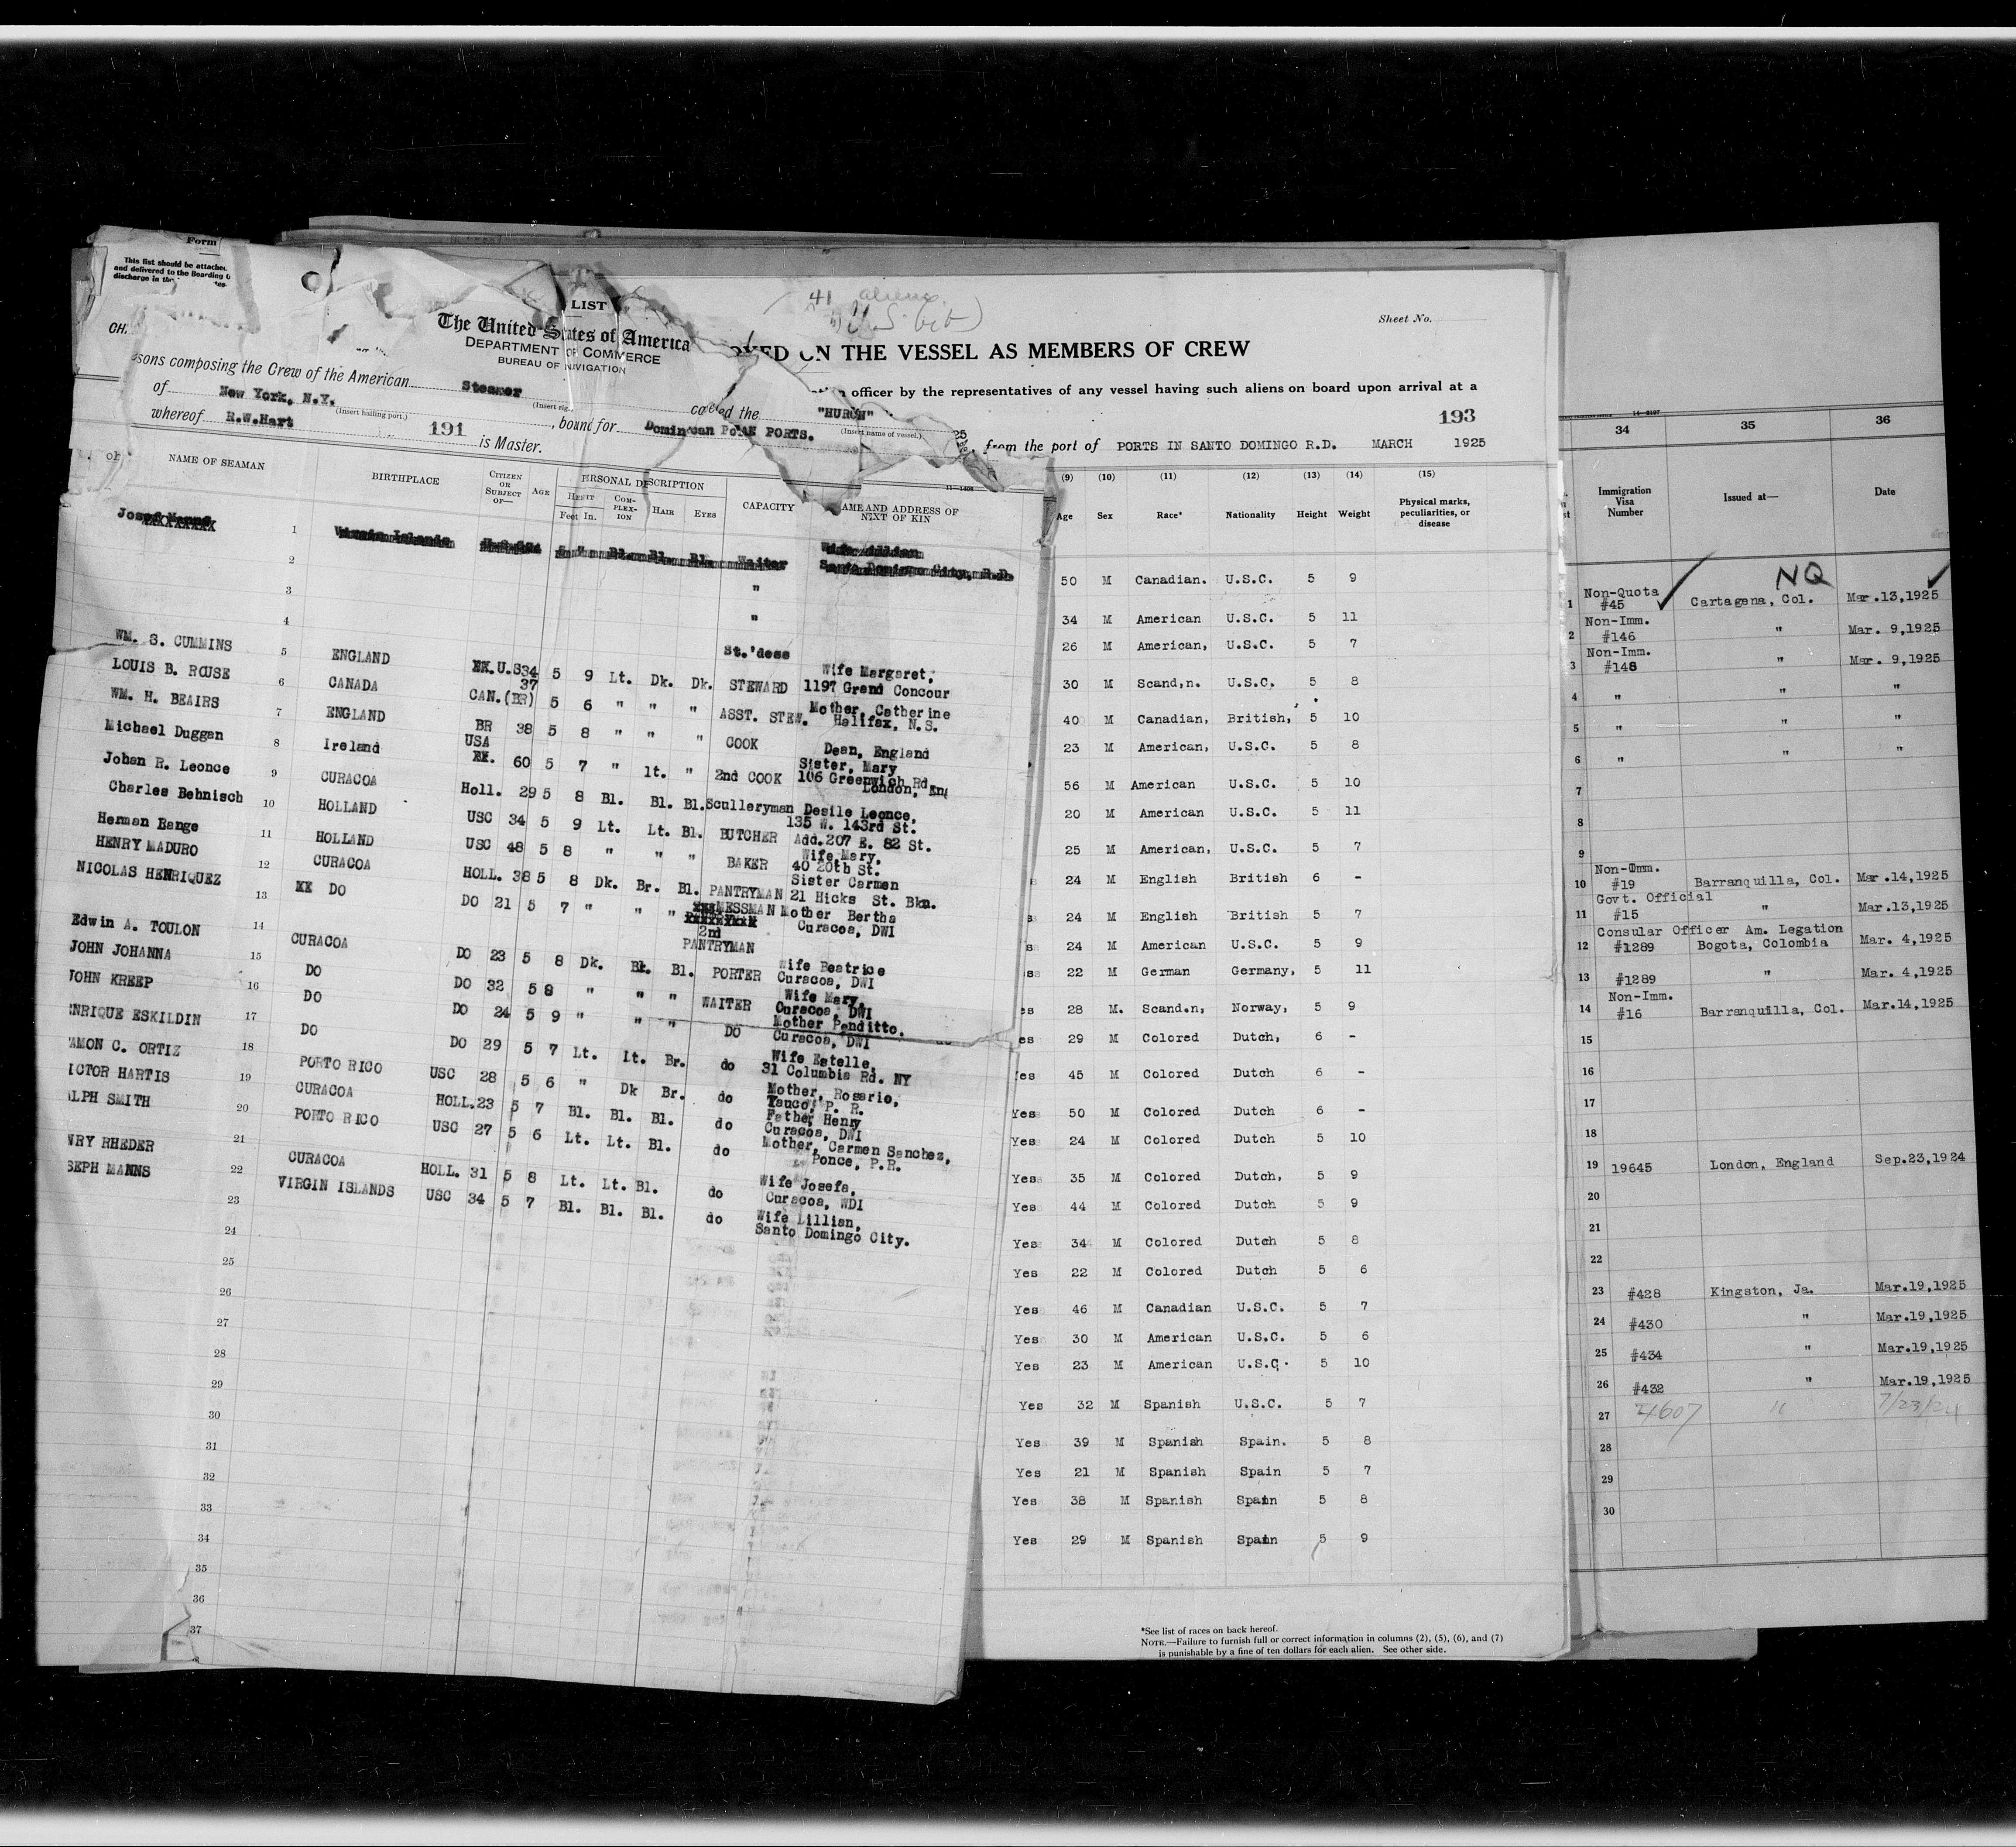 Form
This list should be attached
and delivered to the Boarding
discharge in the
LIST
The United States of America
DEPARTMENT OF COMMERCE
BUREAU OF NAVIGATION
sons composing the Crew of the American Steamer called the "HURON"
(Insert rig.) (Insert name of vessel.)
of New York, N.Y. , bound for PORTS.
(Insert hailing port.)
whereof R.W.Hart 191 is Master.
NAME OF SEAMAN BIRTHPLACE CITIZEN OR SUBJECT OF— AGE PERSONAL DESCRIPTION CAPACITY NAME AND ADDRESS OF NEXT OF KIN
Feet In. COMPLEXION HAIR EYES
1 Waiter
2 "
3 "
4 St.'dess
WM. S. CUMMINS 5 ENGLAND U.S 34 5 9 Lt. Dk. Dk. STEWARD Wife Margaret, 1197 Grand Concour
LOUIS B. ROUSE 6 CANADA CAN.(BR) 37 5 6 " " " ASST. STEW. Mother, Catherine Halifax, N.S.
WM. H. BEAIRS 7 ENGLAND BR 38 5 8 " " " COOK Dean, England
Michael Duggan 8 Ireland USA 60 5 7 " lt. " 2nd COOK Sister, Mary 106 Greenwich Rd London, Eng
Johan R. Leonce 9 CURACOA Holl. 29 5 8 Bl. Bl. Bl. Sculleryman Desile Leonce, 135 W. 143rd St.
Charles Behnisch 10 HOLLAND USC 34 5 9 Lt. Lt. Bl. BUTCHER Add.207 E. 82 St.
Herman Bange 11 HOLLAND USC 48 5 8 " " " BAKER Wife Mary, 40 20th St.
HENRY MADURO 12 CURACOA HOLL. 38 5 8 Dk. Br. Bl. PANTRYMAN Sister Carmen 21 Hicks St. Bkn.
NICOLAS HENRIQUEZ 13 DO DO 21 5 7 " " " MESSMAN 2nd PANTRYMAN Mother Bertha Curacoa, DWI
Edwin A. TOULON 14 CURACOA DO 23 5 8 Dk. Bl. Bl. PORTER Wife Beatrice Curacoa, DWI
JOHN JOHANNA 15 DO DO 32 5 8 " " " WAITER Wife Mary, Curacoa, DWI
JOHN KREEP 16 DO DO 24 5 9 " " " DO Mother Panditto, Curacoa, DWI
NRIQUE ESKILDIN 17 DO DO 29 5 7 Lt. Lt. Br. do Wife Estelle, 31 Columbia Rd. NY
AMON C. ORTIZ 18 PORTO RICO USC 28 5 6 " Dk Br. do Mother, Rosario, Yauco, P. R.
ICTOR HARTIS 19 CURACOA HOLL. 23 5 7 Bl. Bl. Bl. do Father Henry Curacoa, DWI
LPH SMITH 20 PORTO RICO USC 27 5 6 Lt. Lt. Bl. do Mother, Carmen Sanchez, Ponce, P.R.
NRY RHEDER 21 CURACOA HOLL. 31 5 8 Lt. Lt. Bl. do Wife Josefa, Curacoa, WDI
SEPH MANNS 22 VIRGIN ISLANDS USC 34 5 7 Bl. Bl. Bl. do Wife Lillian, Santo Domingo City.
23
24
25
26
27
28
29
30
31
32
33
34
35
36
37
41 aliens
Sheet No.
ON THE VESSEL AS MEMBERS OF CREW
officer by the representatives of any vessel having such aliens on board upon arrival at a
193
, from the port of PORTS IN SANTO DOMINGO R.D. MARCH 1925
(9) (10) (11) (12) (13) (14) (15)
Age Sex Race* Nationality Height Weight Physical marks, peculiarities, or disease
50 M Canadian. U.S.C. 5 9
34 M American U.S.C. 5 11
26 M American, U.S.C. 5 7
30 M Scand,n. U.S.C. 5 8
40 M Canadian, British, 5 10
23 M American, U.S.C. 5 8
56 M American U.S.C. 5 10
20 M American U.S.C. 5 11
25 M American, U.S.C. 5 7
24 M English British 6 -
24 M English British 5 7
24 M American U.S.C. 5 9
22 M German Germany, 5 11
28 M. Scand.n, Norway, 5 9
29 M Colored Dutch, 6 -
45 M Colored Dutch 6 -
Yes 50 M Colored Dutch 6 -
Yes 24 M Colored Dutch 5 10
Yes 35 M Colored Dutch, 5 9
Yes 44 M Colored Dutch 5 9
Yes 34 M Colored Dutch 5 8
Yes 22 M Colored Dutch 5 6
Yes 46 M Canadian U.S.C. 5 7
Yes 30 M American U.S.C. 5 6
Yes 23 M American U.S.C. 5 10
Yes 32 M Spanish U.S.C. 5 7
Yes 39 M Spanish Spain. 5 8
Yes 21 M Spanish Spain 5 7
Yes 38 M Spanish Spain 5 8
Yes 29 M Spanish Spain 5 9
*See list of races on back hereof.
NOTE.—Failure to furnish full or correct information in columns (2), (5), (6), and (7)
is punishable by a fine of ten dollars for each alien. See other side.
34 35 36
Immigration Visa Number Issued at— Date
NQ
1 Non-Quota #45 Cartagena, Col. Mar.13,1925
2 Non-Imm. #146 " Mar. 9,1925
3 Non-Imm. #148 " Mar. 9,1925
4 " " "
5 " " "
6 " " "
7
8
9
10 Non-Imm. #19 Barranquilla, Col. Mar.14,1925
11 Govt. Official #15 " Mar.13,1925
12 Consular Officer Am. Legation #1289 Bogota, Colombia Mar. 4,1925
13 #1289 " Mar. 4,1925
14 Non-Imm. #16 Barranquilla, Col. Mar.14,1925
15
16
17
18
19 19645 London, England Sep.23,1924
20
21
22
23 #428 Kingston, Ja. Mar.19,1925
24 #430 " Mar.19,1925
25 #434 " Mar.19,1925
26 #432 " Mar.19,1925
27 4607 " 7/23/24
28
29
30